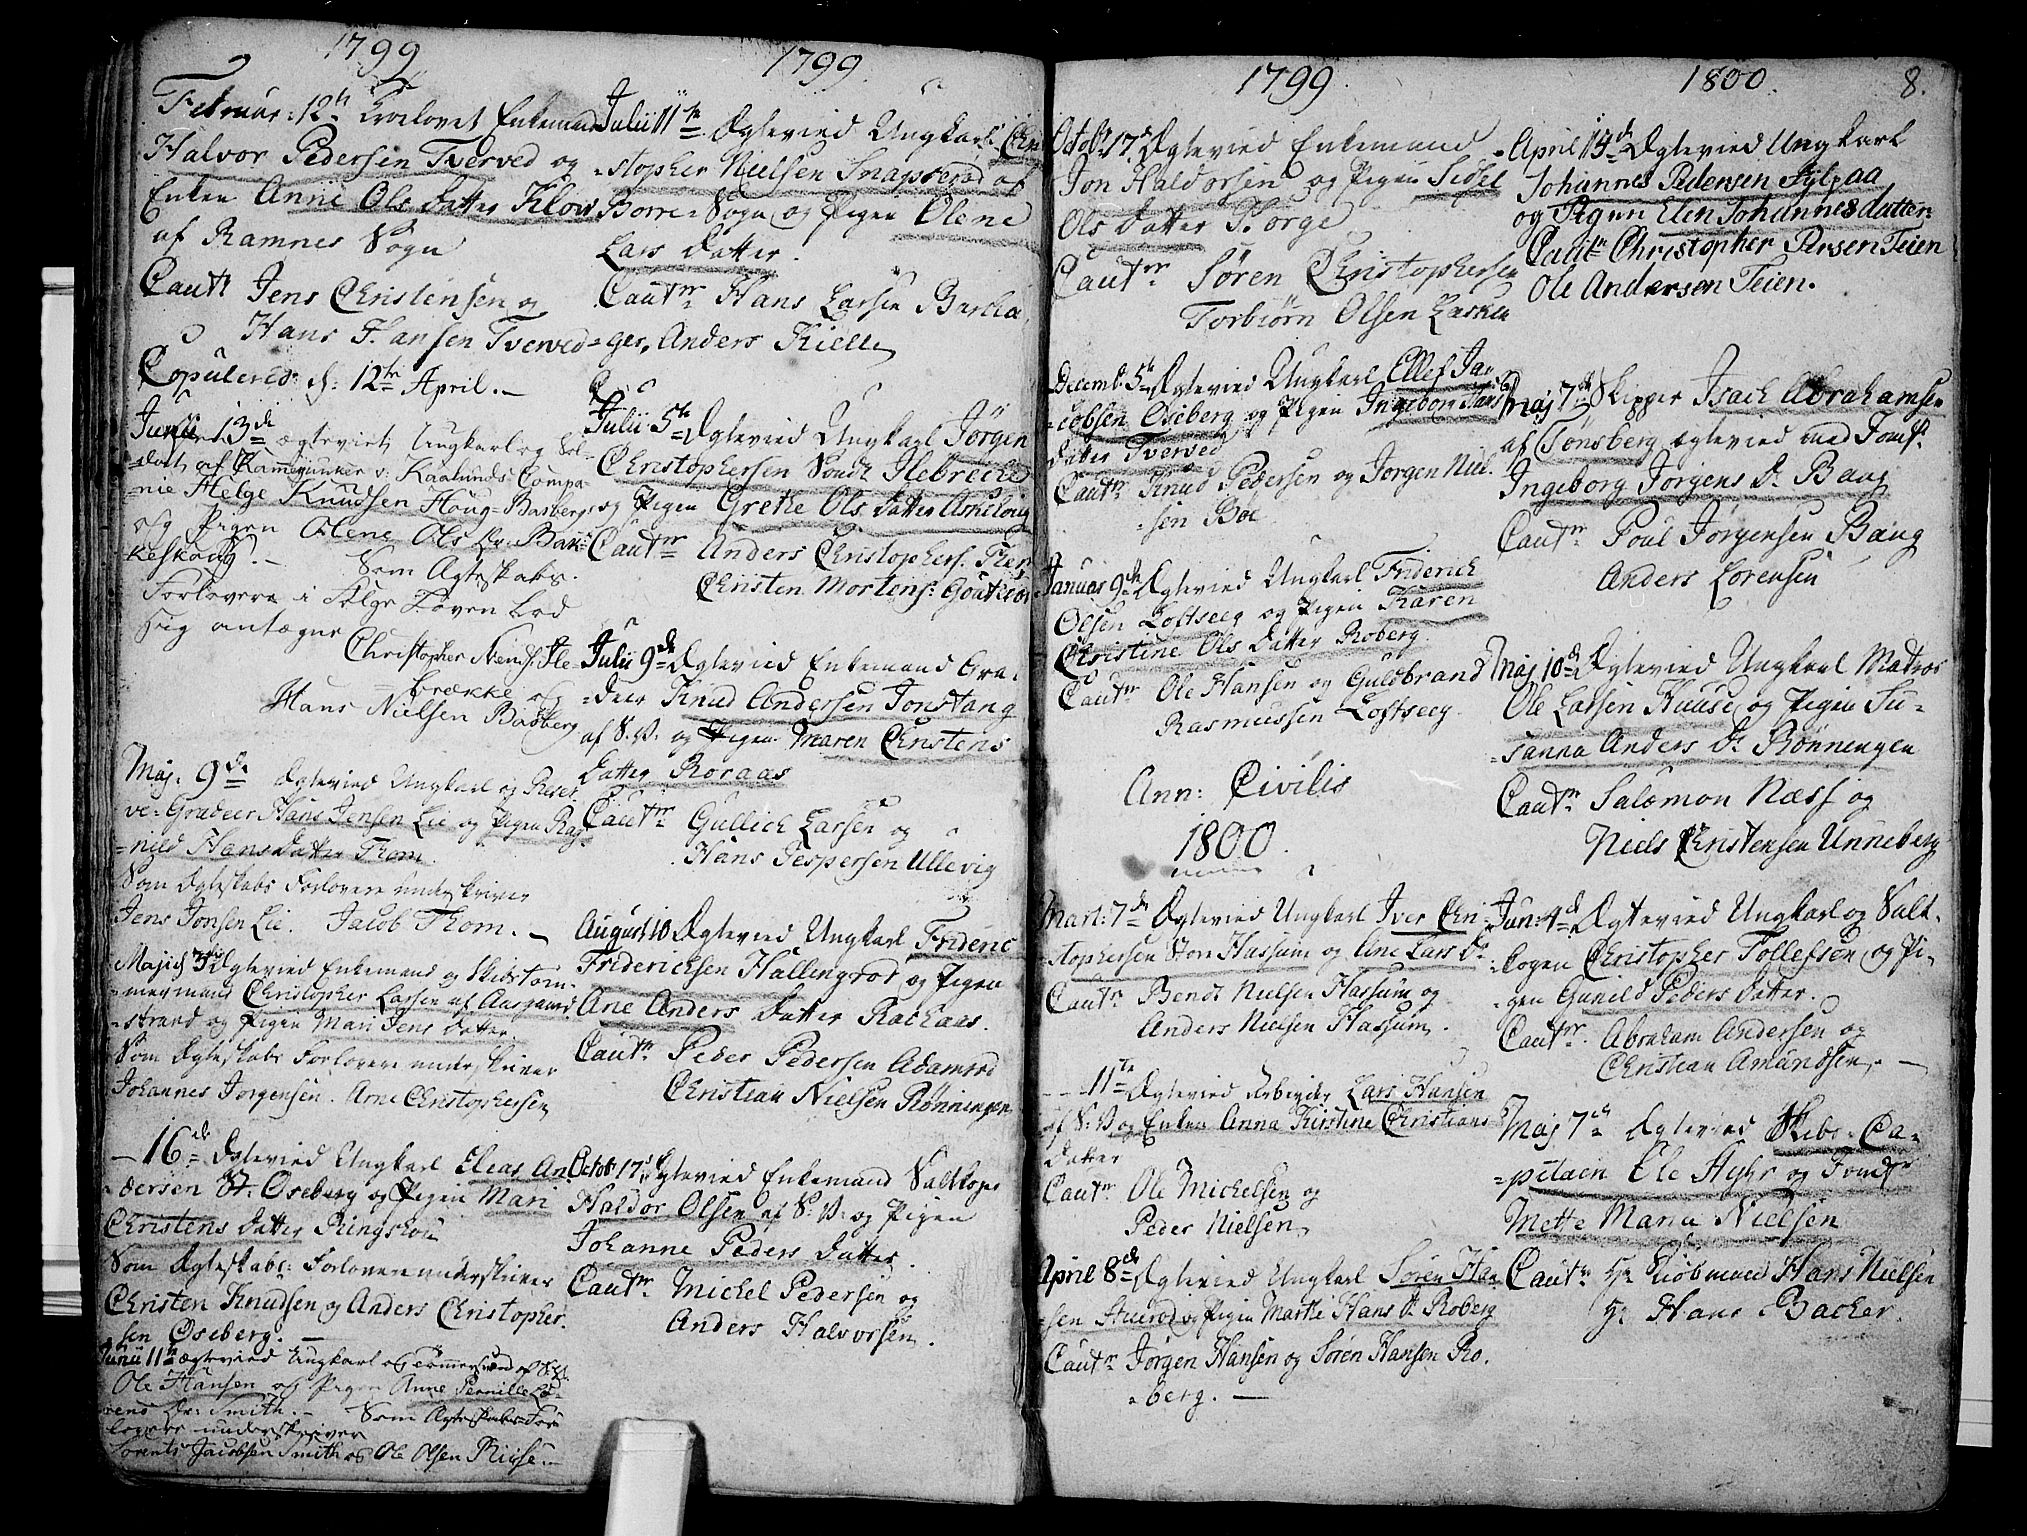 1799
Februar: 12te trolovet Enkemand
Halvor Pedersen Tverved og
Enken Anne Ols Datter Klow
af Ramnes Sogn
Caut: Jens Christensen og
Hans Hansen Tverved
Copulered: d: 12te April.
Junii 13de ægteviet Ungkarl og Sol-
dat af Kammerjunker v: Kaalunds Compa-
nie Helge Knudsen Houg-Basberg
og Pigen Olene Ols Dr: Bak-
keskoug.- Som Ægteskabs.
Forlovere i Følge Loven lod
sig antægne
Christopher Ile-
brække og
Hans Nielsen Basberg
Maj: 9de Ægtevied Ungkarl og Reser
ve-Gradeer Hans Jensen Lie og Pigen Rag-
=nild Hans Datter Thom.
Som Ægteskabs Forlovere underskriver
Jens Jonsen Lie. Jacob Thom. —
Maji Ægtevied Enkemand og Skibstøm-
mermand Christopher Larsen af Aasgaard-
=strand og Pigen Mari Jens Datter.
Som Ægteskabs Forlovere underskriver
Johannes Jørgensen. Arne Christophersen
— 16de Ægtevied Ungkarl Elias An-
=dersen St. Oseberg og Pigen Mari
Christens Datter Ringshou
Som Ægteskabs: Forlovere underskriver
Christen Knudsen og Anders Christopher-
sen Oseberg. —
Junii 11te ægtevied Ungkarl og Tømmermand af
Ole Hansen og Pigen Anne Pernille Lo-
rens Dr: Smith.- Som Ægteskabs-For-
lovere underskriver
Lorents Jacobsen Smith og Ole Olsen Riise.-
1799
Julii 11te Ægtevied Ungkarl Chri-
=stopher Nielsen Snapserød af
Borre-Sogn og Pigen Olene
Lars Datter.
Cautnr Hans Larsen Barka
=ger, Anders Kielle
Julii 5te Ægtevied Ungkarl Jörgen
Christophersen Sondr Ilebrecke
og Pigen Grethe Ols Datter Askeloug
Cautnr Anders Christophers.
Christen Mortens:
Julii 9de Ægtevied Enkemand Gra-
=deer Knud Andersen Jonstang
af S:V: og Pigen Maren Christens
Datter Roraas
Cautnr Gullich Larsen og
Hans Jespersen Ullevig
August 10 Ægtevied Ungkarl Frideric
Fridericksen Hallingrød og Pigen
Ane Anders Datter Rachaas.
Cautnr Peder Pedersen Adamrød
Christian Nielsen Rønningen
Octob: 17de Ægtevied Enkemand Saltkoger
Haldor Olsen af S:V: og Pigen
Johanne Peders Datter.
Cautnr Michel Pedersen og
Anders Halvorsen.
1799
Octob: 17de Ægtevied Enkemand
Jon Haldorsen og Pigen Sidsel
Ols Datter Borge
Cautnr Søren Christophersen
Torbiørn Olsen Lasken
Decemb: 5te Ægtevied Ungkarl Ellef Ja-
=cobsen Oseberg og Pigen Ingeborg Hans
Datter Tverved
Cautnr Knud Pedersen og Jørgen Niel-
=sen Bøe
Januar 9de Ægtevied Ungkarl Friderich
Olsen Loftseeg og Pigen Karen
Christine Ols Datter Roberg.
Cautnr Ole Hansen og Guldbrand
Rasmussen Loftseeg.
Ann: Civilis
1800.
Mart: 7de Ægtevied Ungkarl Iver Chri-
stophersen Stor Hassum og Ane Lars Dr
Cautnr Bendt Nielsen Hassum og
Anders Nielsen Hassum.
- - 11te Ægtevied Arbeyder Lars Hansen
af S:V: og Enken Anna Kirstine Christians
Datter
Cautnr Ole Michelsen og
Peder Nielsen
April 8de Ægtevied Ungkarl Søren Han-
=sen og Pigen Marthe Hans Dr Roberg
Cautnr Jørgen Hansen og Søren Hansen Ro-
=berg. —
1800. 8.
April 14de Ægtevied Ungkarl
Johannes Pedersen Fylpaa
og Pigen Elen Johannesdatter:
Cautnr Christopher Persen Teien
Ole Andersen Teien.
Maj 7de Skipper Isach Abrahamsen
af Tønsberg ægtevied med Jomfr.
Ingeborg Jørgens Dr Bang
Cautnr Poul Jørgensen Bang
Anders Lorensen
Maj 10de Ægtevied Ungkarl Matros
Ole Larsen Huuse og Pigen Su-
=sanna Anders Dr Rønningen
Cautnr Salomon Næss og
Niels Christensen Unneberg
Jun: 4de Ægtevied Ungkarl og Salt-
=kogen Christopher Tollefsen og Pi-
=gen Gunild Peders Datter.
Cautnr. Abraham Andersen og
Christian Amundsen. —
Maj 7de Ægtevied Skibs-Ca-
=pitain Ole Hyhr og Jomfr
Mette Maria Nielsen
Cautnr Hr Kiøbmand Hans Nielsen
Hr Hans Backer.